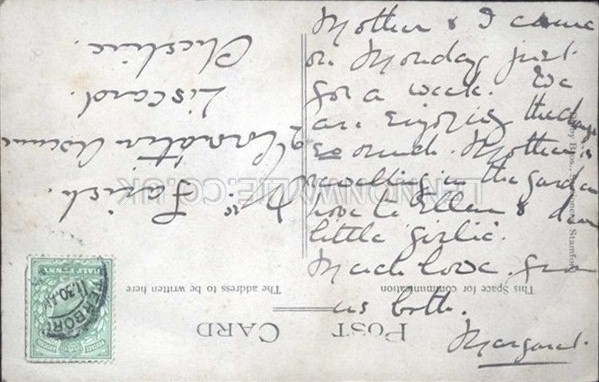 Mother & I came
on Monday just
for a week. We
are enjoying the change
so much. Mother is
walking in the garden
love to Ellen & dear
little
Much love from
us both.
Margaret.
POST CARD
This Space for communication
The address to be written here
Mrs. Farish.
Coronation Avenue
Liscard.
Cheshire.
LENNONWYLIE.CO.UK
Bros., Stamford
HALF PENNY
TERBORO
11.30